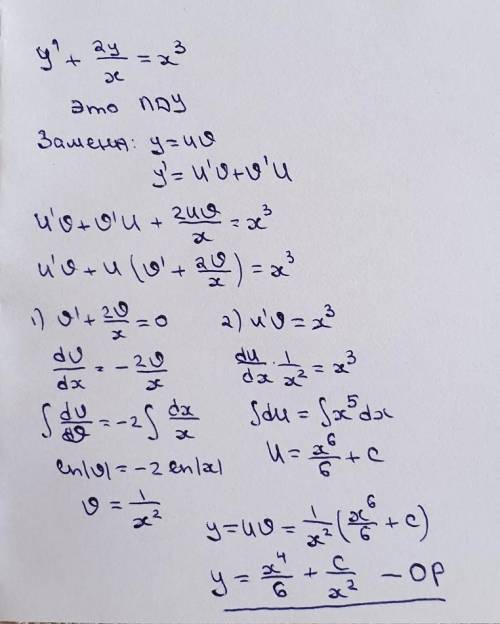 y' + 2y/x = x³
Это ЛДУ
Замена: y = uv
y' = u'v + v'u
u'v + v'u + 2uv/x = x³
u'v + u (v' + 2v/x) = x³
1) v' + 2v/x = 0
dv/dx = -2v/x
∫ dv/v = -2 ∫ dx/x
ln|v| = -2 ln|x|
v = 1/x²
2) u'v = x³
du/dx · 1/x² = x³
∫du = ∫x⁵dx
u = x⁶/6 + C
y = uv = 1/x² (x⁶/6 + C)
y = x⁴/6 + C/x² - ОР